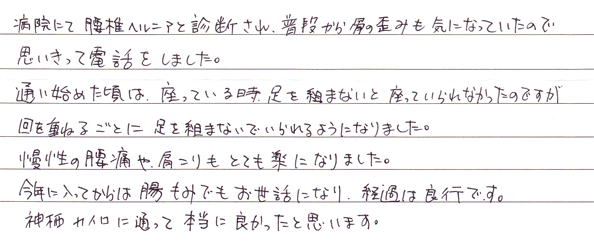 病院にて 腰椎ヘルニアと診断され、普段から肩の歪みも気になっていたので
思いきって電話をしました。
通い始めた頃は、座っている時、足を組まないと座っていられなかったのですが
回を重ねるごとに足を組まないでいられるようになりました。
慢性の腰痛や、肩こりもとても楽になりました。
今年に入ってからは腸もみでもお世話になり、経過は良行です。
神栖カイロに通って本当に良かったと思います。